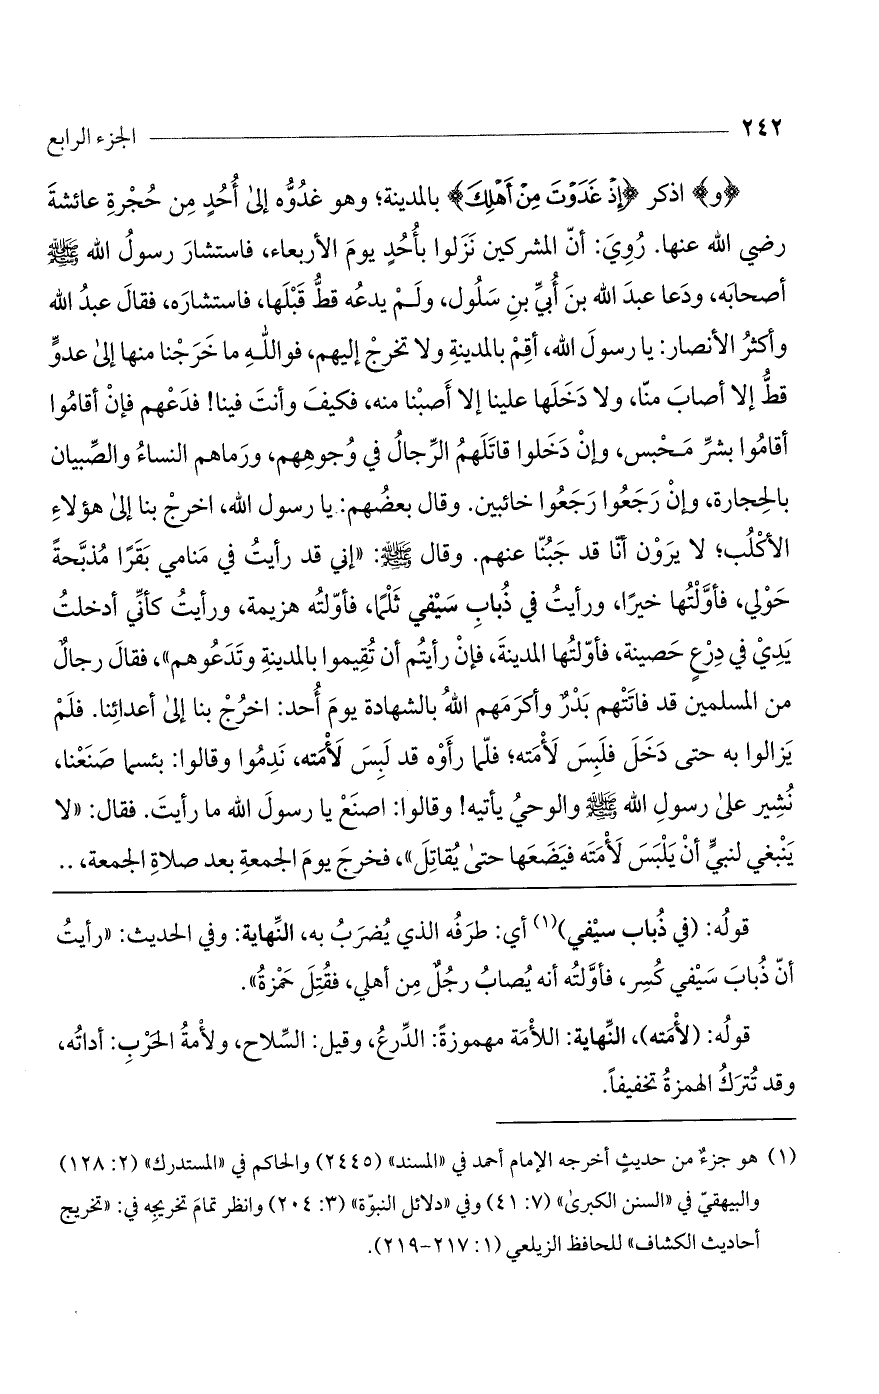 ٢٤٢ ــــــــــــــــــــ الجزء الرابع
﴿و﴾ اذكر ﴿إِذْ غَدَوْتَ مِنْ أَهْلِكَ﴾ بالمدينة؛ وهو غدُوُّه إلىٰ أُحُدٍ مِن حُجْرةِ عائشةَ
رضي الله عنها. رُوِيَ: أنّ المشركين نَزَلوا بأُحُدٍ يومَ الأربعاء، فاستشارَ رسولُ الله ﷺ
أصحابَه، ودَعا عبدَ الله بنَ أُبيِّ بنِ سَلُول، ولَـمْ يدعُه قطُّ قَبْلَها، فاستشارَه، فقالَ عبدُ الله
وأكثرُ الأنصار: يا رسولَ الله، أقِمْ بالمدينةِ ولا تخرجْ إليهم، فواللّٰـهِ ما خَرَجْنا منها إلىٰ عدوٍّ
قطُّ إلا أصابَ منّا، ولا دَخَلَها علينا إلا أَصبْنا منه، فكيفَ وأنتَ فينا! فدَعْهم فإنْ أقامُوا
أقامُوا بشرِّ مَـحْبس، وإنْ دَخَلوا قاتَلَهمُ الرِّجالُ في وُجوهِهم، ورَماهم النساءُ والصِّبيان
بالحِجارة، وإنْ رَجَعُوا رَجَعُوا خائبين. وقال بعضُهم: يا رسول الله، اخرجْ بنا إلىٰ هؤلاءِ
الأكْلُب؛ لا يرَوْن أنّا قد جَبُنّا عنهم. وقال ﷺ: «إني قد رأيتُ في مَنامي بَقَرًا مُذبَّحةً
حَوْلي، فأوَّلْتُها خيرًا، ورأيتُ في ذُبابِ سَيْفي ثَلْمًا، فأوّلتُه هزيمة، ورأيتُ كأنِّي أدخلتُ
يَدِيْ في دِرْعٍ حَصينة، فأوّلتُها المدينةَ، فإنْ رأيتُم أن تُقِيموا بالمدينةِ وتَدَعُوهم»، فقالَ رجالٌ
من المسلمين قد فاتَتْهم بَدْرٌ وأكرَمَهم اللهُ بالشهادة يومَ أُحد: اخرُجْ بنا إلىٰ أعدائِنا. فلَمْ
يَزالوا به حتى دَخَلَ فلَبِسَ لَأْمَته؛ فلمّا رأَوْه قد لَبِسَ لَأْمَته، نَدِمُوا وقالوا: بئسما صَنَعْنا،
نُشِير علىٰ رسولِ الله ﷺ والوحيُ يأتيه! وقالوا: اصنَعْ يا رسولَ الله ما رأيتَ. فقال: «لا
يَنْبغي لنبيٍّ أنْ يَلْبَسَ لَأْمَته فيَضَعَها حتىٰ يُقاتِلَ»، فخرجَ يومَ الجمعةِ بعد صلاةِ الجمعة، ..
قولُه: (في ذُباب سيْفي)(١) أي: طرَفُه الذي يُضرَبُ به، النِّهاية: وفي الحديث: «رأيتُ
أنّ ذُبابَ سَيْفي كُسِر، فأوَّلتُه أنه يُصابُ رجُلٌ مِن أهلي، فقُتِلَ حَمْزةُ».
قولُه: (لأْمَته)، النِّهاية: اللأمَة مهموزةً: الدِّرعُ، وقيل: السِّلاح، ولأْمةُ الحَرْبِ: أداتُه،
وقد تُترَكُ الهمزةُ تخفيفاً.
(١) هو جزءٌ من حديثٍ أخرجه الإمام أحمد في «المسند» (٢٤٤٥) والحاكم في «المستدرك» (٢: ١٢٨)
والبيهقيّ في «السنن الكبرىٰ» (٧: ٤١) وفي «دلائل النبوّة» (٣: ٢٠٤) وانظر تمامَ تخريجِه في: «تخريج
أحاديث الكشاف» للحافظ الزيلعي (١: ٢١٧-٢١٩).